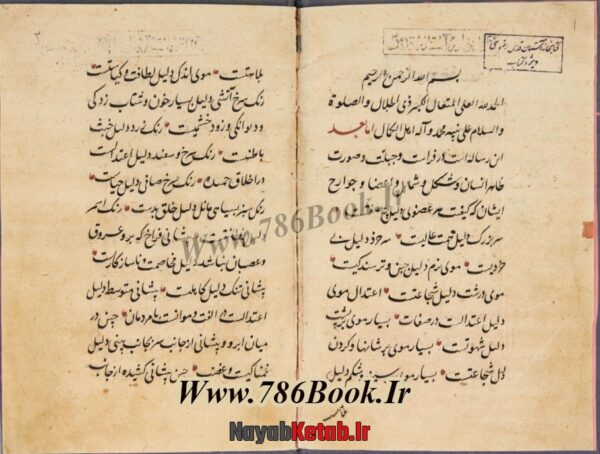 بسم الله الرحمن الرحیم
الحمدلله العلی المتعال الکبیر ذی الجلال والصلوة
والسلام علی نبیه محمد وآله اهل الکمال اما بعد
این رساله است در فراست وجهات وصورت
ظاهر انسان وشکل وشمایل واعضا و جوارح
ایشان که کیفیت هر عضوی دلیل چیست
سر بزرک دلیل همت عالیست سر خرد دلیل بی
خردیست موی نرم دلیل جبن و ترسندکیست
موی درشت دلیل شجاعتست اعتدال موی
دلیل اعتدالست در صفات بسیار موی بر پشت
دلیل شهوتست بسیار موی بر شانها و کردن
دلیل شجاعتست بسیار موی بر سینه و شکم دلیل
بلاهتست موی اندک دلیل لطافت و کیاستست
رنک سرخ آتشی دلیل بسیار خون و شتاب زدکی
و دیوانکی و زود خشمیست رنک زرد دلیل خبث
باطنست رنک سرخ و سفید دلیل اعتدالست
در اخلاق حمیده رنک سرخ صافی دلیل حیاست
رنک سبز بسیاهی مائل دلیل خلق بدست رنک اسمر
پیشانی فراخ که بر و عروق
و غضبان نباشد دلیل مخاصمت و ناسازکاریست
پیشانی تنک دلیل کاهلیست پیشانی متوسط دلیل
اعتدالست والفت و موانست با مردمان چین در
میان ابرو و پیشانی از جانب سر بجانب بینی دلیل
غمناکیست و غضب چین پیشانی کشیده از جانب
www.786Book.Ir
Www.786Book.Ir
NayabKetab.Ir